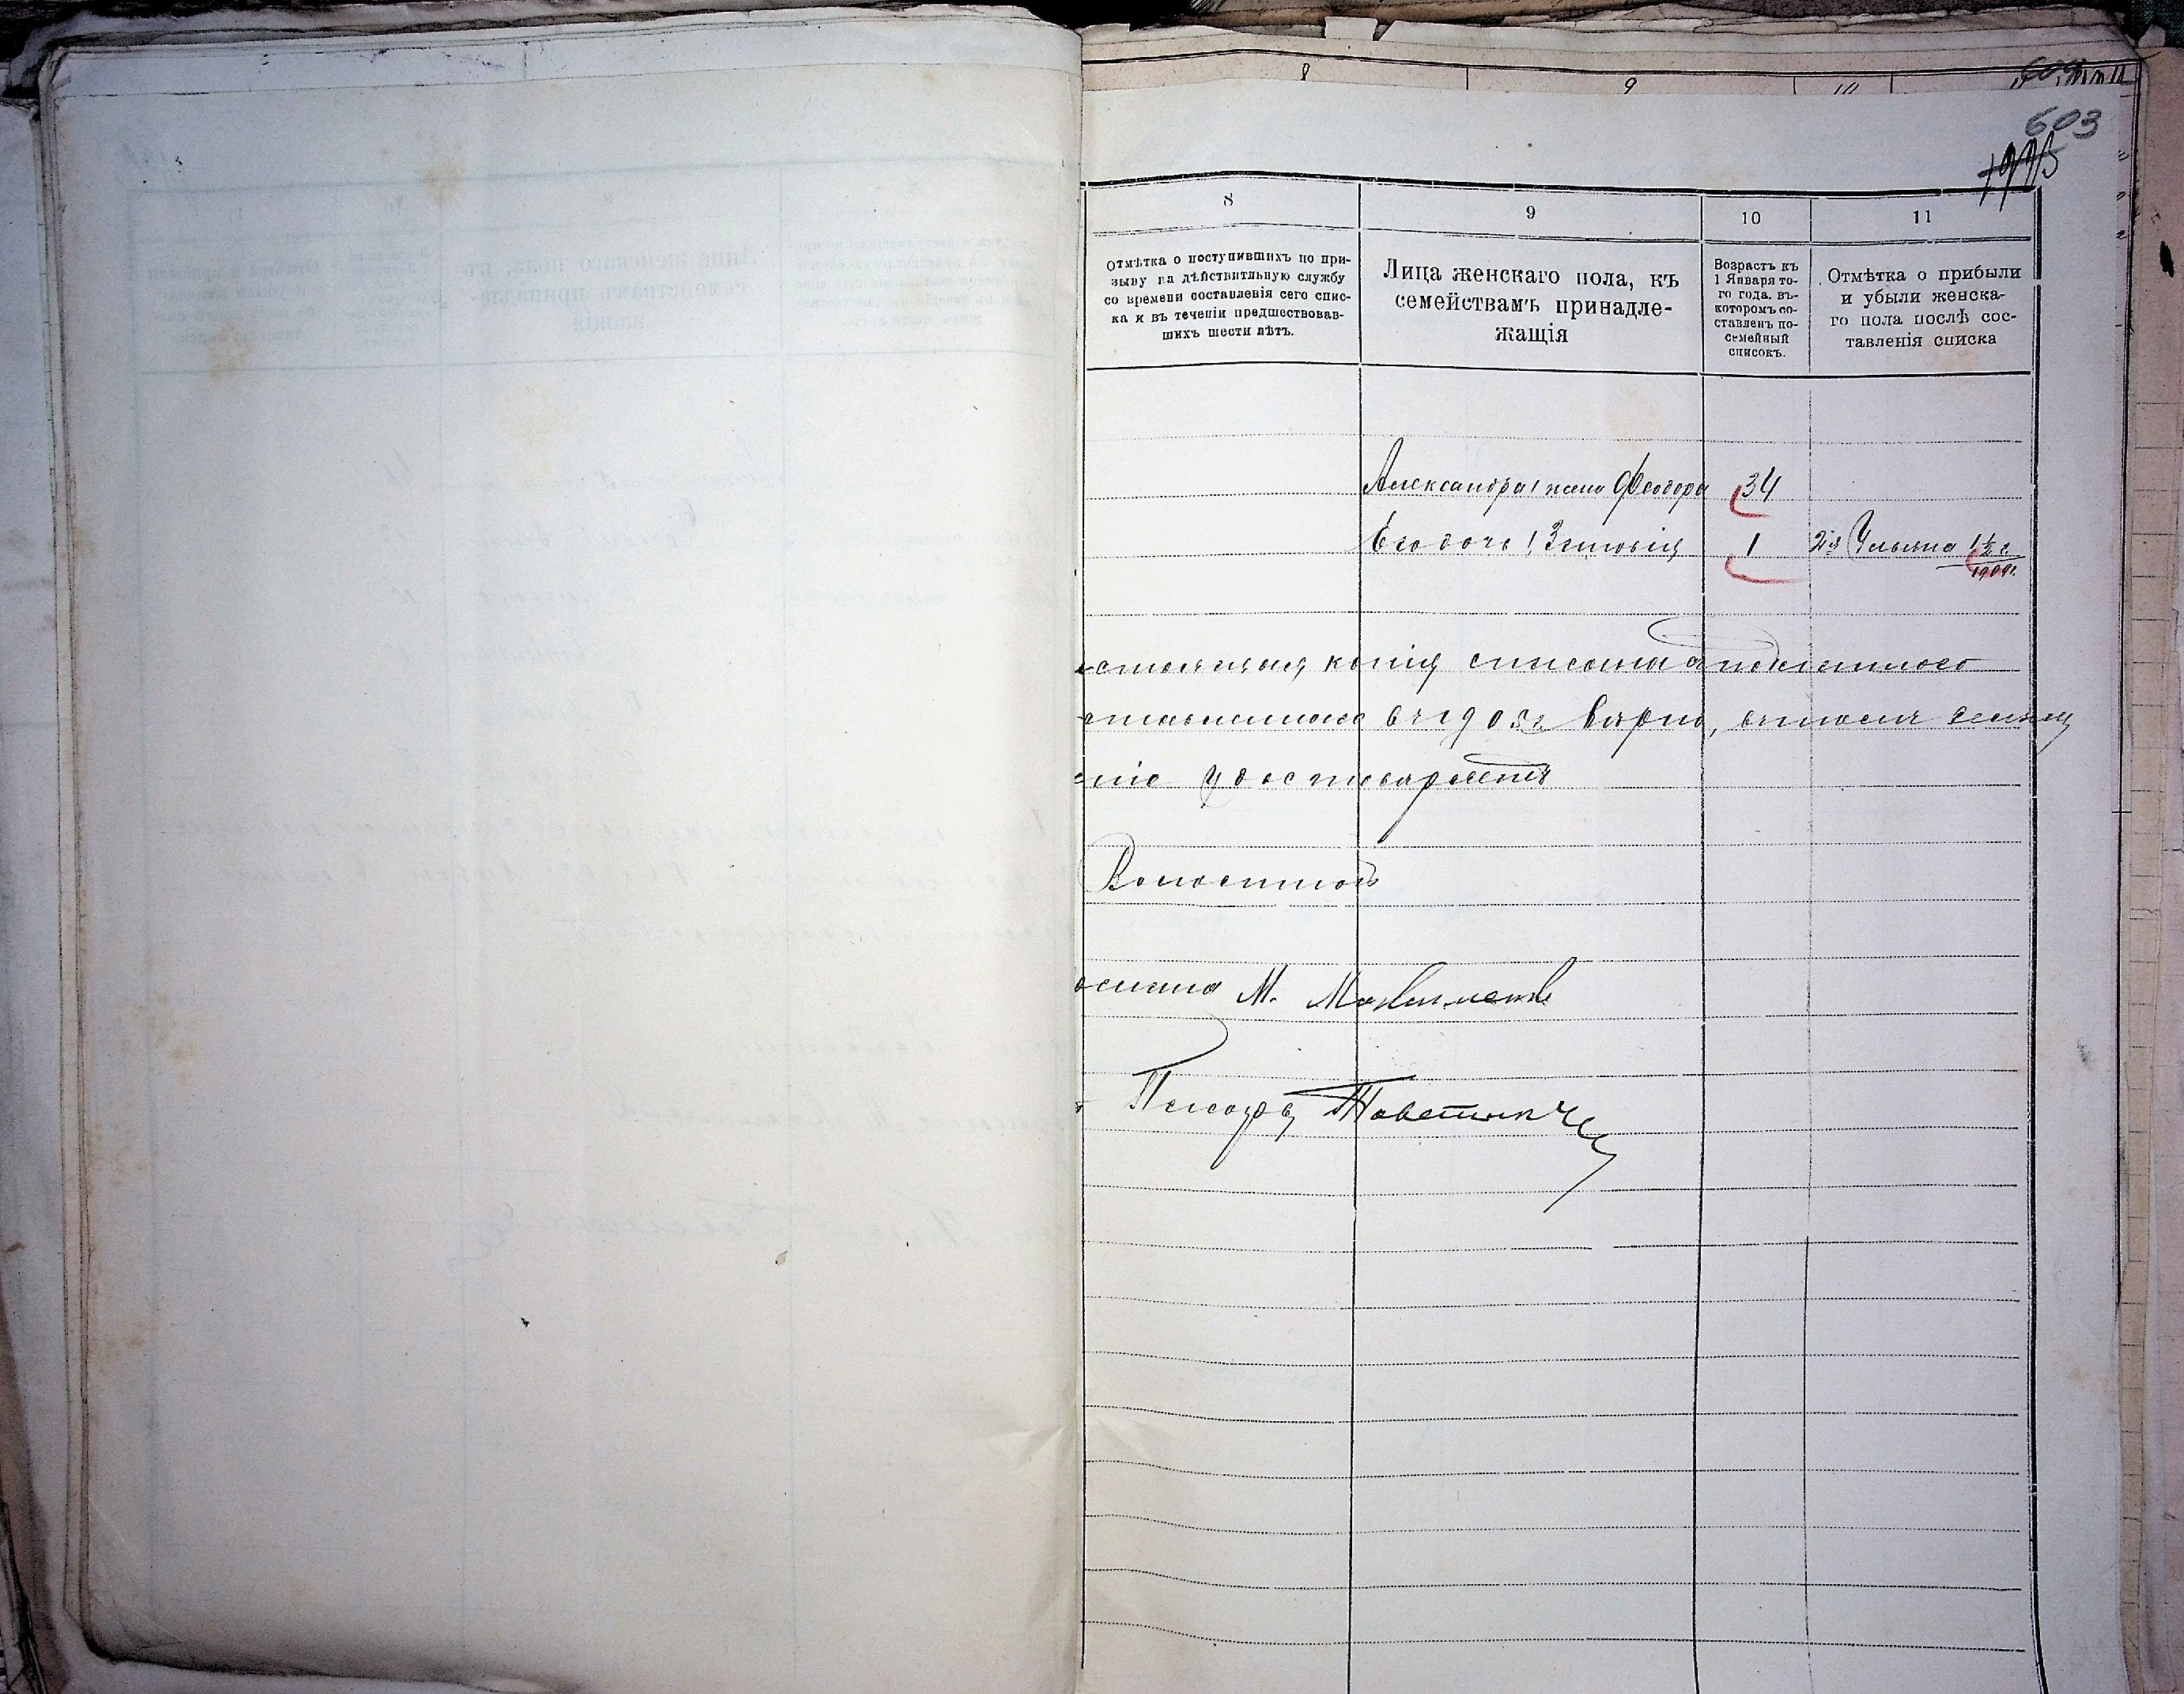 8
9
10
603
8
9
10
11
Отмѣтка о поступившихъ по при-
зыву на дѣйствительную службу
со времени составленія сего спис-
ка и въ теченіи предшествовав-
шихъ шести лѣтъ.
Лица женскаго пола, къ
семействамъ принадле-
жащія
Возрастъ къ
1 Января то-
го года, въ
которомъ со-
ставленъ по-
семейный
списокъ.
Отмѣтка о прибыли
и убыли женска-
го пола послѣ сос-
тавленія списка
Александра жена Феодора 34
Его дочь Зиновія 1 2я Ульяна 1½ г.
1909г.
копія списана подлиннаго
въ 1905г вѣрно, въ томъ
ніе удостовѣряетъ
Волостной
М.
Писарь